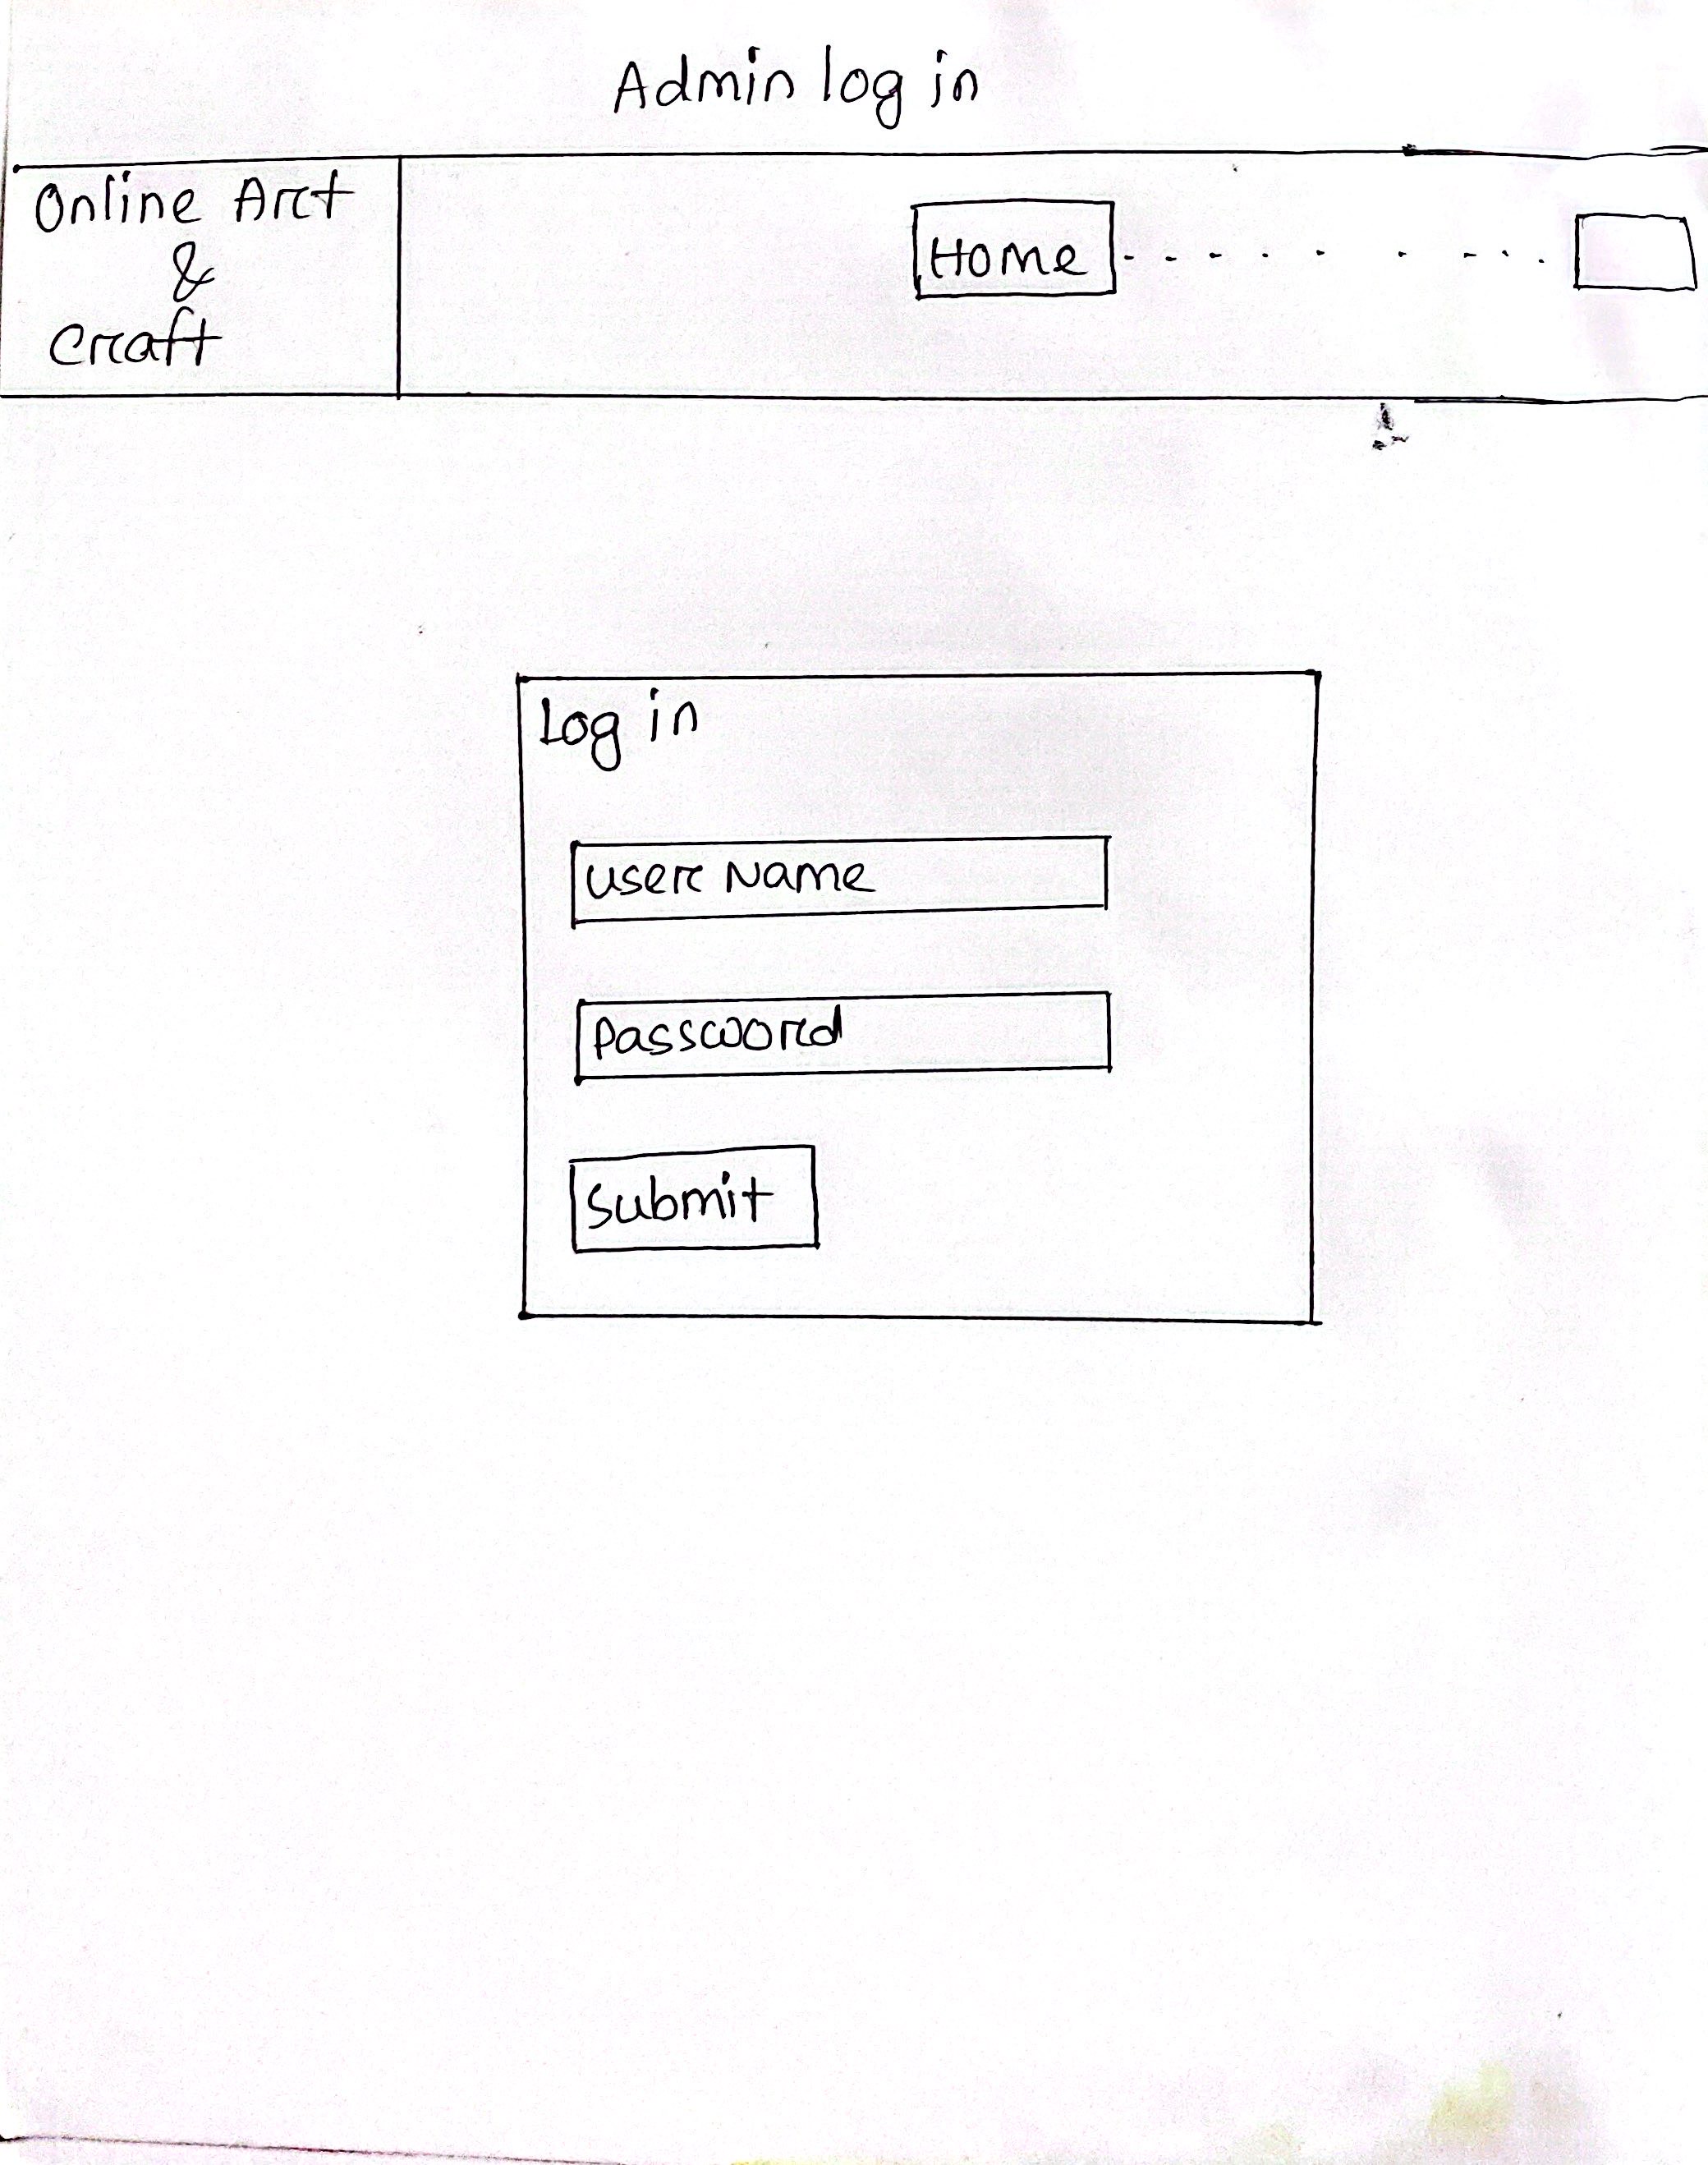 Admin log in
Online Art
&
Craft
Home
Log in
User Name
Password
Submit